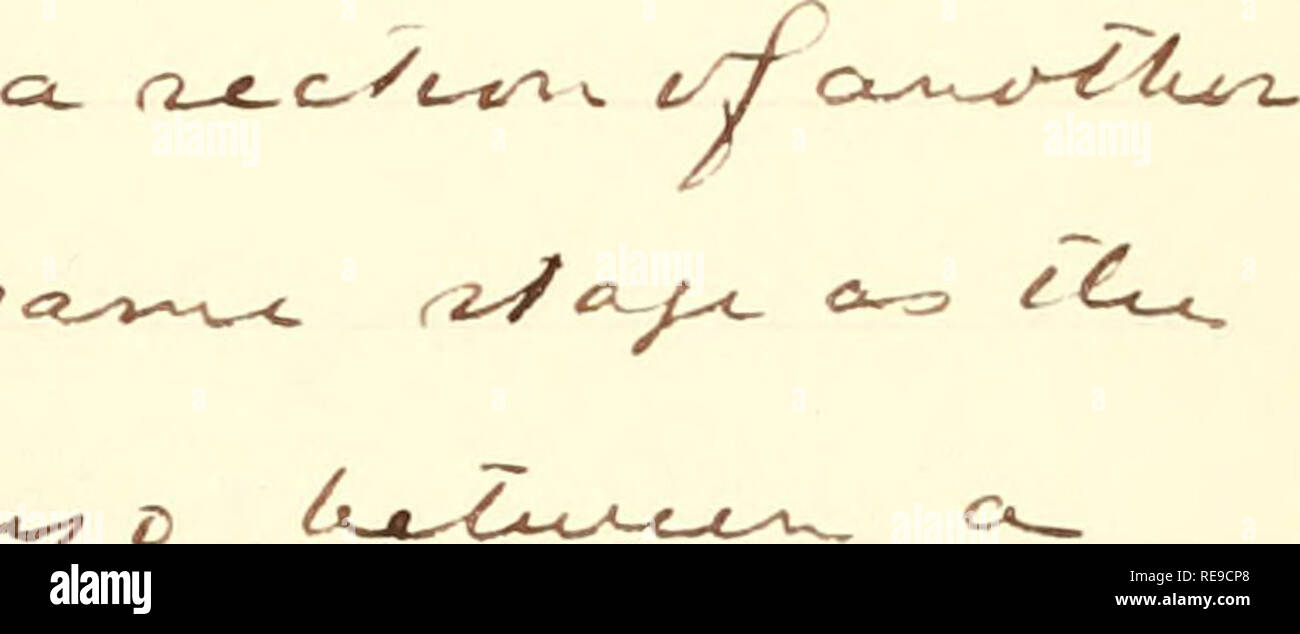 a section of another
ame stage as the
between a
alamy
Image ID: RE9CP8
www.alamy.com